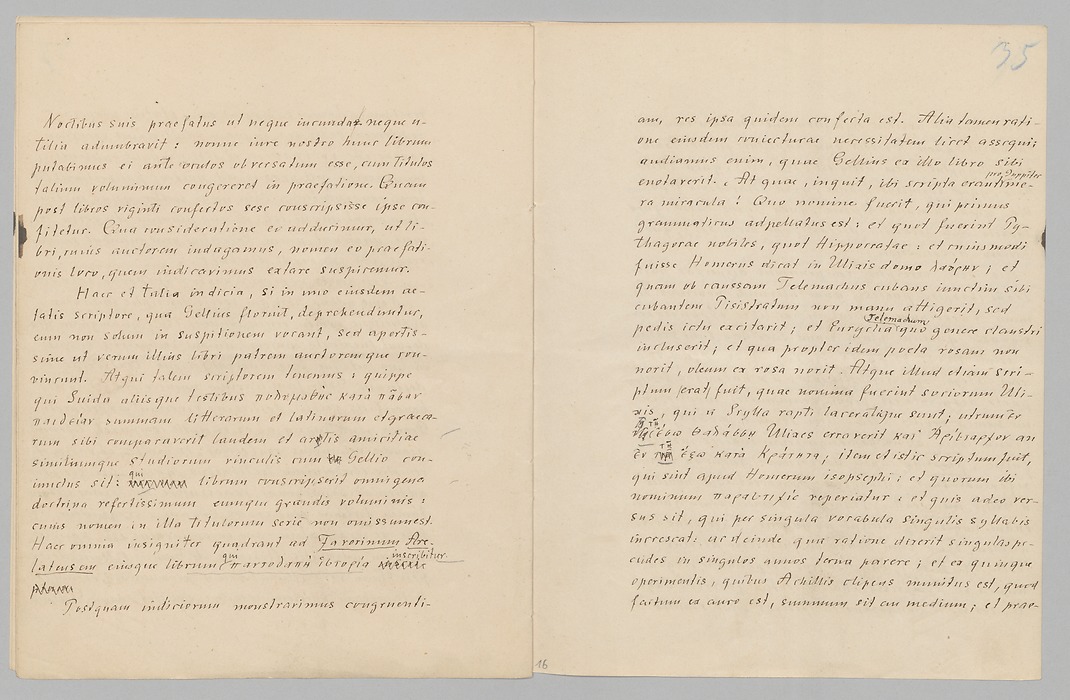 Noctibus suis praefatus ut neque iucunda neque u-
tilia adumbravit: nonne iure nostro hunc librum
putabimus ei ante oculos obversatum esse, cum titulos
talium voluminum congereret in praefatione. Quam
post libros viginti confectos sese conscripsisse ipse con-
fitetur. Qua consideratione eo adducimur, ut li-
bri, cuius auctorem indagamus, nomen eo praefati-
onis loco, quem indicavimus extare suspicemur.
Haec et talia indicia, si in uno eiusdem ae-
tatis scriptore, qua Gellius floruit, deprehenduntur,
eum non solum in suspitionem vocant, sed apertis-
sime ut verum illius libri patrem auctoremque con-
vincunt. Atqui talem scriptorem tenemus: quippe
qui Suida aliisque testibus πολυμαθὴς κατὰ πᾶσαν
παιδείαν summam litterarum et latinarum et graeca-
rum sibi comparaverit laudem et artis amicitiae
similiumque studiorum vinculis cum Gellio con-
iunctus sit: qui librum conscripserit omnigena
doctrina refertissimum eumque grandis voluminis:
cuius nomen in illa titulorum serie non omissum est.
Haec omnia insigniter quadrant ad Favorinum Are-
latensem eiusque librum qui παντοδαπὴ ἱστορία inscribitur.
Postquam indiciorum monstravimus congruenti-
35
am, res ipsa quidem confecta est. Alia tamen rati-
one eiusdem coniecturae necessitatem licet assequi:
audiamus enim, quae Gellius ex illo libro sibi
enotaverit. At quae, inquit, ibi scripta erant pro Juppiter me-
ra miracula! Quo nomine fuerit, qui primus
grammaticus adpellatus est: et quot fuerint Py-
thagorae nobiles, quot Hippocratae: et cuiusmodi
fuisse Homerus dicat in Ulixis domo λαύρην; et
quam ob caussam Telemachus cubans iunctim sibi
cubantem Pisistratum non manu attigerit, sed
pedis ictu excitarit; et Euryclia Telemachum quo genere claustri
incluserit; et qua propter idem poeta rosam non
norit, oleum ex rosa norit. Atque illud etiam scri-
ptum fuit, quae nomina fuerint sociorum Uli-
xis, qui a Scylla rapti laceratique sunt; utrum ἐν
τῇ ἔσω θαλάσσῃ Ulixes erraverit κατ' Ἀρίσταρχον an
ἐν τῇ ἔξω κατὰ Κράτητα; item et istic scriptum fuit,
qui sint apud Homerum isopsephi; et quorum ibi
nominum παραστιχὶς reperiatur: et quis adeo ver-
sus sit, qui per singula vocabula singulis syllabis
increscat: ac deinde qua ratione dixerit singulas pe-
cudes in singulos annos terna parere; et ex quinque
operimentis, quibus Achillis clipeus munitus est, quod
factum ex auro est, summum sit an medium; et prae-
16